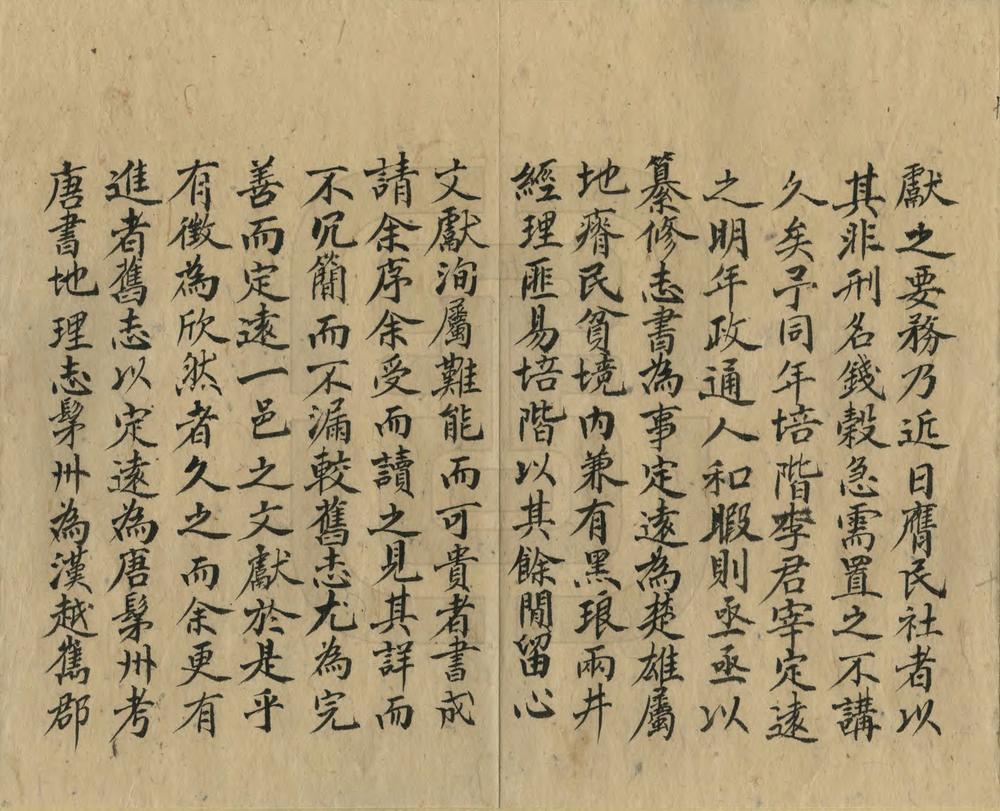 獻之要務乃近日膺民社者以
其非刑名錢穀急需置之不講
久矣予同年培階李君宰定遠
之明年政通人和暇則亟亟以
纂修志書為事定遠為楚雄屬
地瘠民貧境内兼有黑琅兩井
經理匪易培階以其餘閒留心
文獻洵屬難能而可貴者書成
請余序余受而讀之見其詳而
不冗簡而不漏較舊志尤為完
善而定遠一邑之文獻於是乎
有徵為欣然者久之而余更有
進者舊志以定遠為唐髳州考
唐書地理志髳州為漢越巂郡